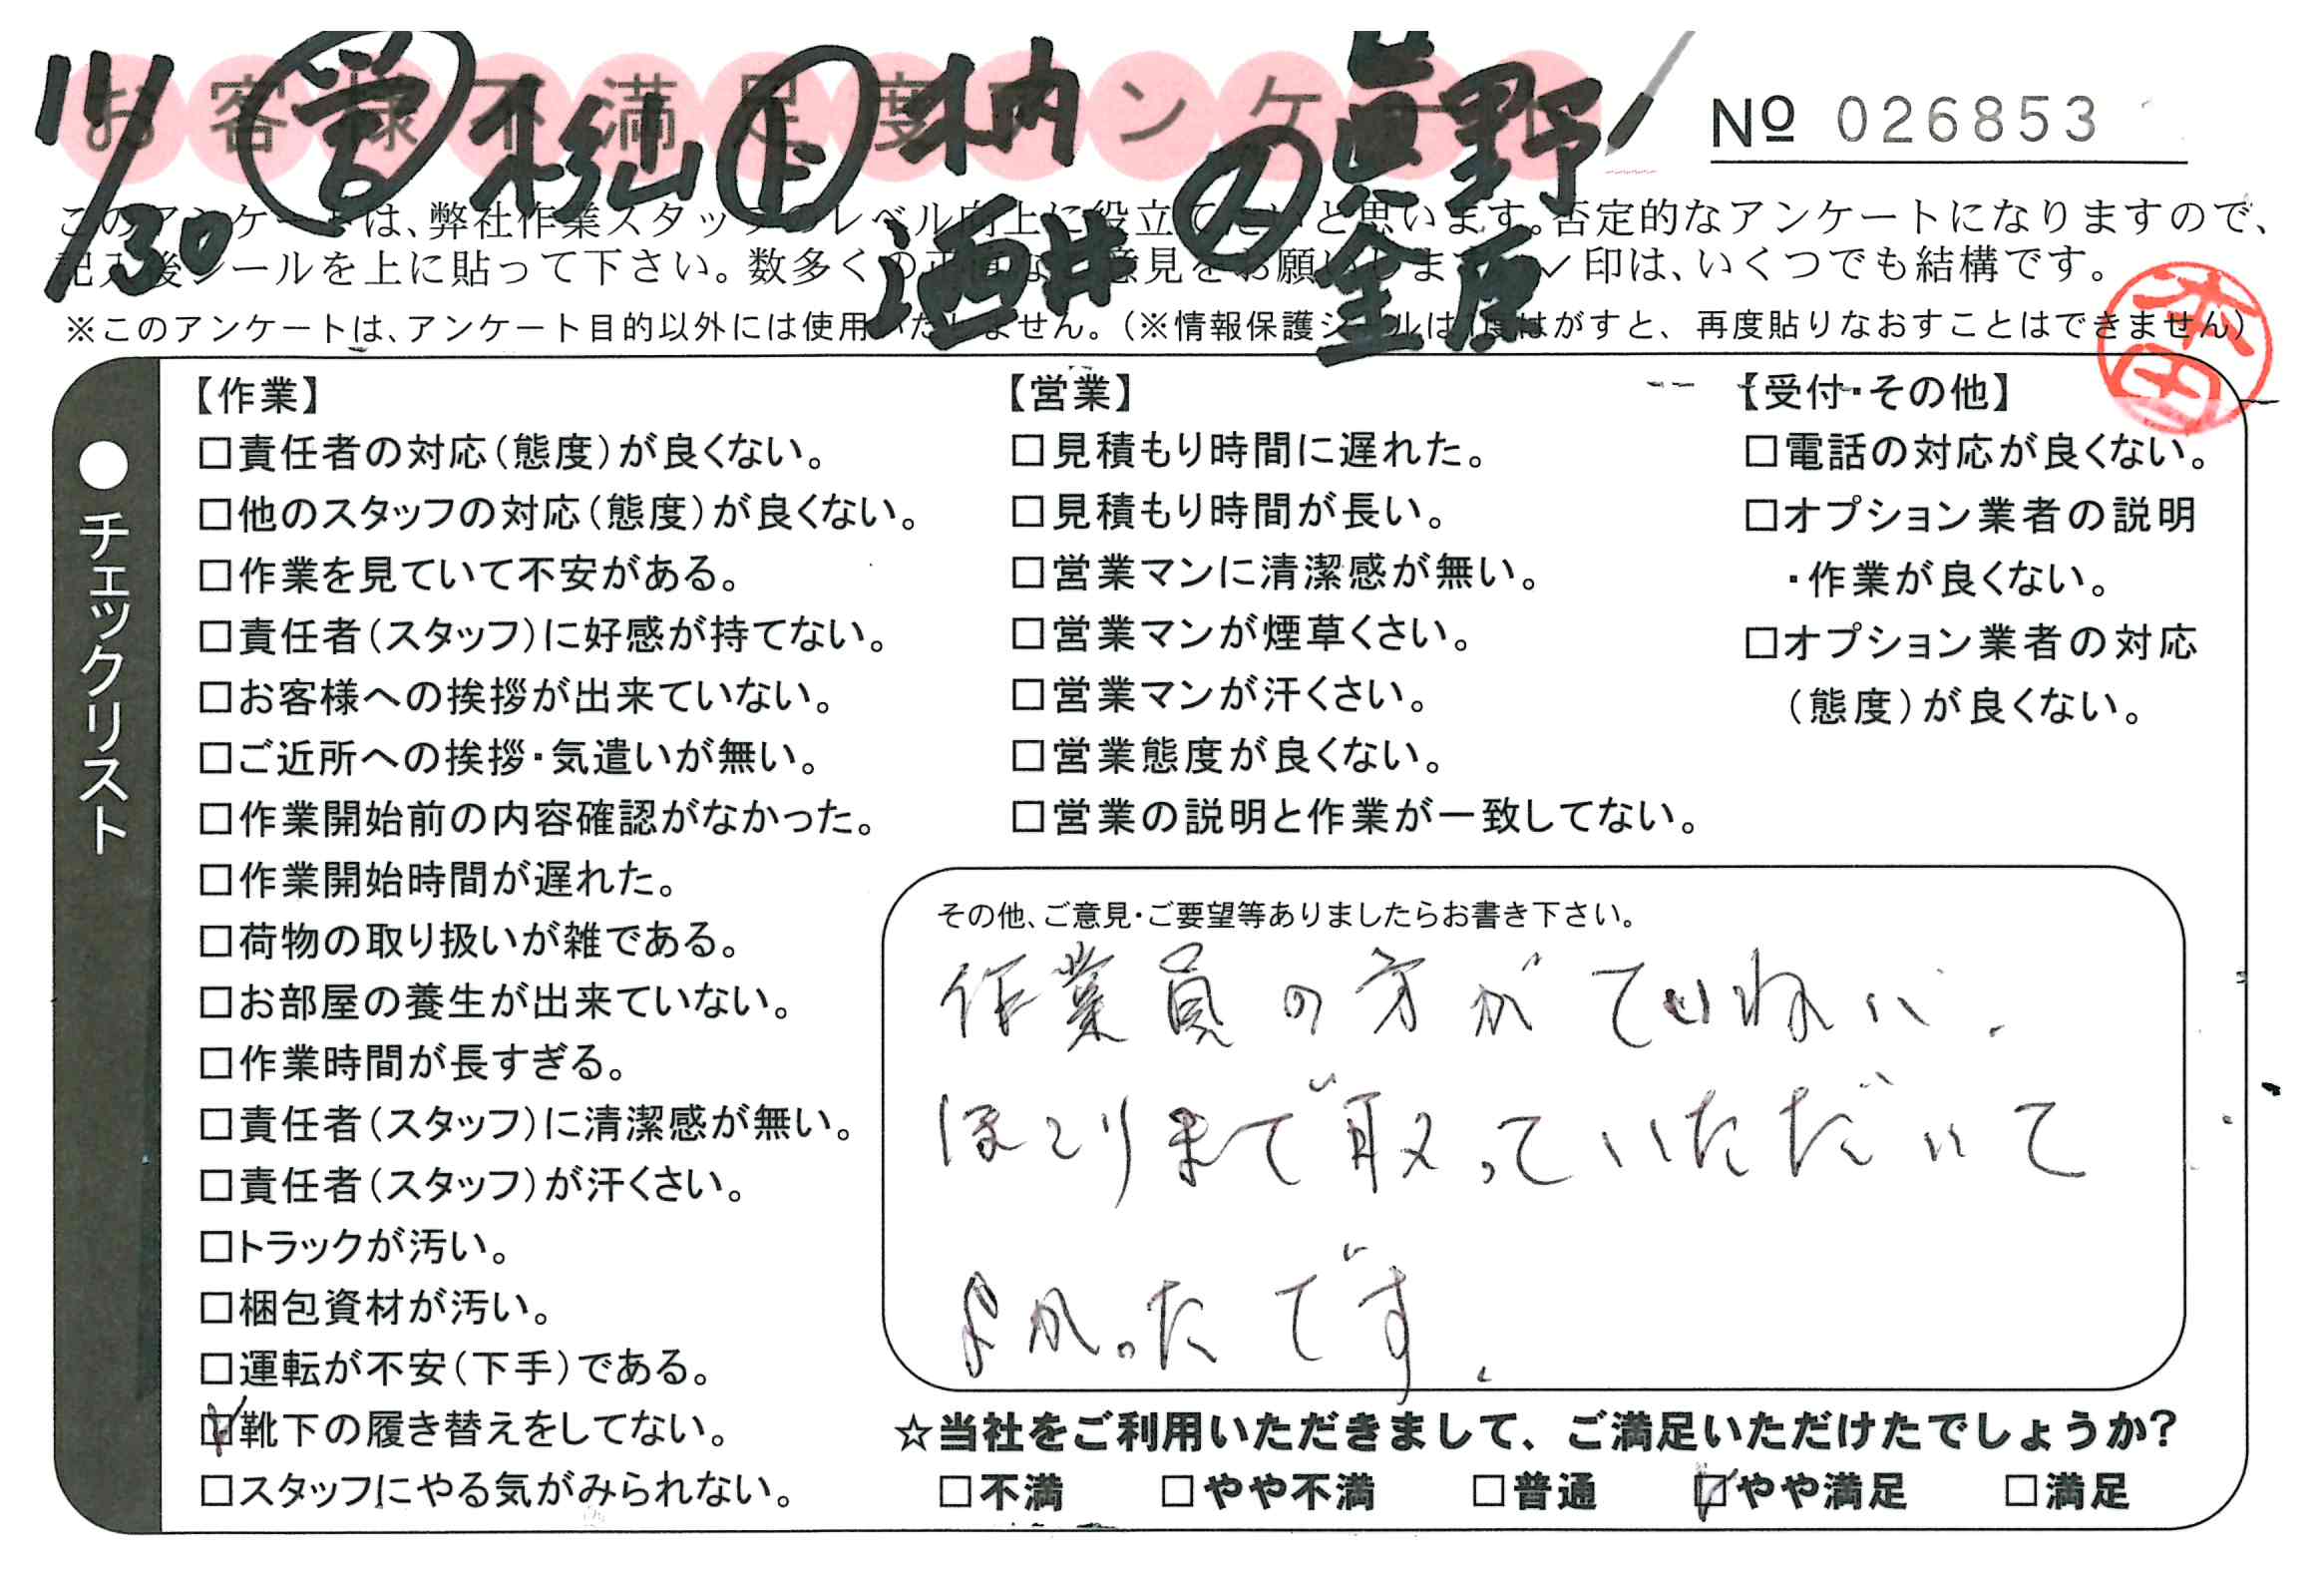 お客様不満足度アンケート
11/30 営 杉山 ト 柄 酒井 入 真野 金原
No 026853
このアンケートは、弊社作業スタッフのレベル向上に役立てたいと思います。否定的なアンケートになりますので、
記入後シールを上に貼って下さい。数多くの正直なご意見をお願いします。✓印は、いくつでも結構です。
※このアンケートは、アンケート目的以外には使用いたしません。(※情報保護シールは1度はがすと、再度貼りなおすことはできません)
本田
●チェックリスト
【作業】
□責任者の対応(態度)が良くない。
□他のスタッフの対応(態度)が良くない。
□作業を見ていて不安がある。
□責任者(スタッフ)に好感が持てない。
□お客様への挨拶が出来ていない。
□ご近所への挨拶・気遣いが無い。
□作業開始前の内容確認がなかった。
□作業開始時間が遅れた。
□荷物の取り扱いが雑である。
□お部屋の養生が出来ていない。
□作業時間が長すぎる。
□責任者(スタッフ)に清潔感が無い。
□責任者(スタッフ)が汗くさい。
□トラックが汚い。
□梱包資材が汚い。
□運転が不安(下手)である。
☑靴下の履き替えをしてない。
□スタッフにやる気がみられない。
【営業】
□見積もり時間に遅れた。
□見積もり時間が長い。
□営業マンに清潔感が無い。
□営業マンが煙草くさい。
□営業マンが汗くさい。
□営業態度が良くない。
□営業の説明と作業が一致してない。
【受付・その他】
□電話の対応が良くない。
□オプション業者の説明
・作業が良くない。
□オプション業者の対応
(態度)が良くない。
その他、ご意見・ご要望等ありましたらお書き下さい。
作業員の方がていねいに、
ほこりまで取っていただいて
よかったです。
☆当社をご利用いただきまして、ご満足いただけたでしょうか?
□不満 □やや不満 □普通 ☑やや満足 □満足